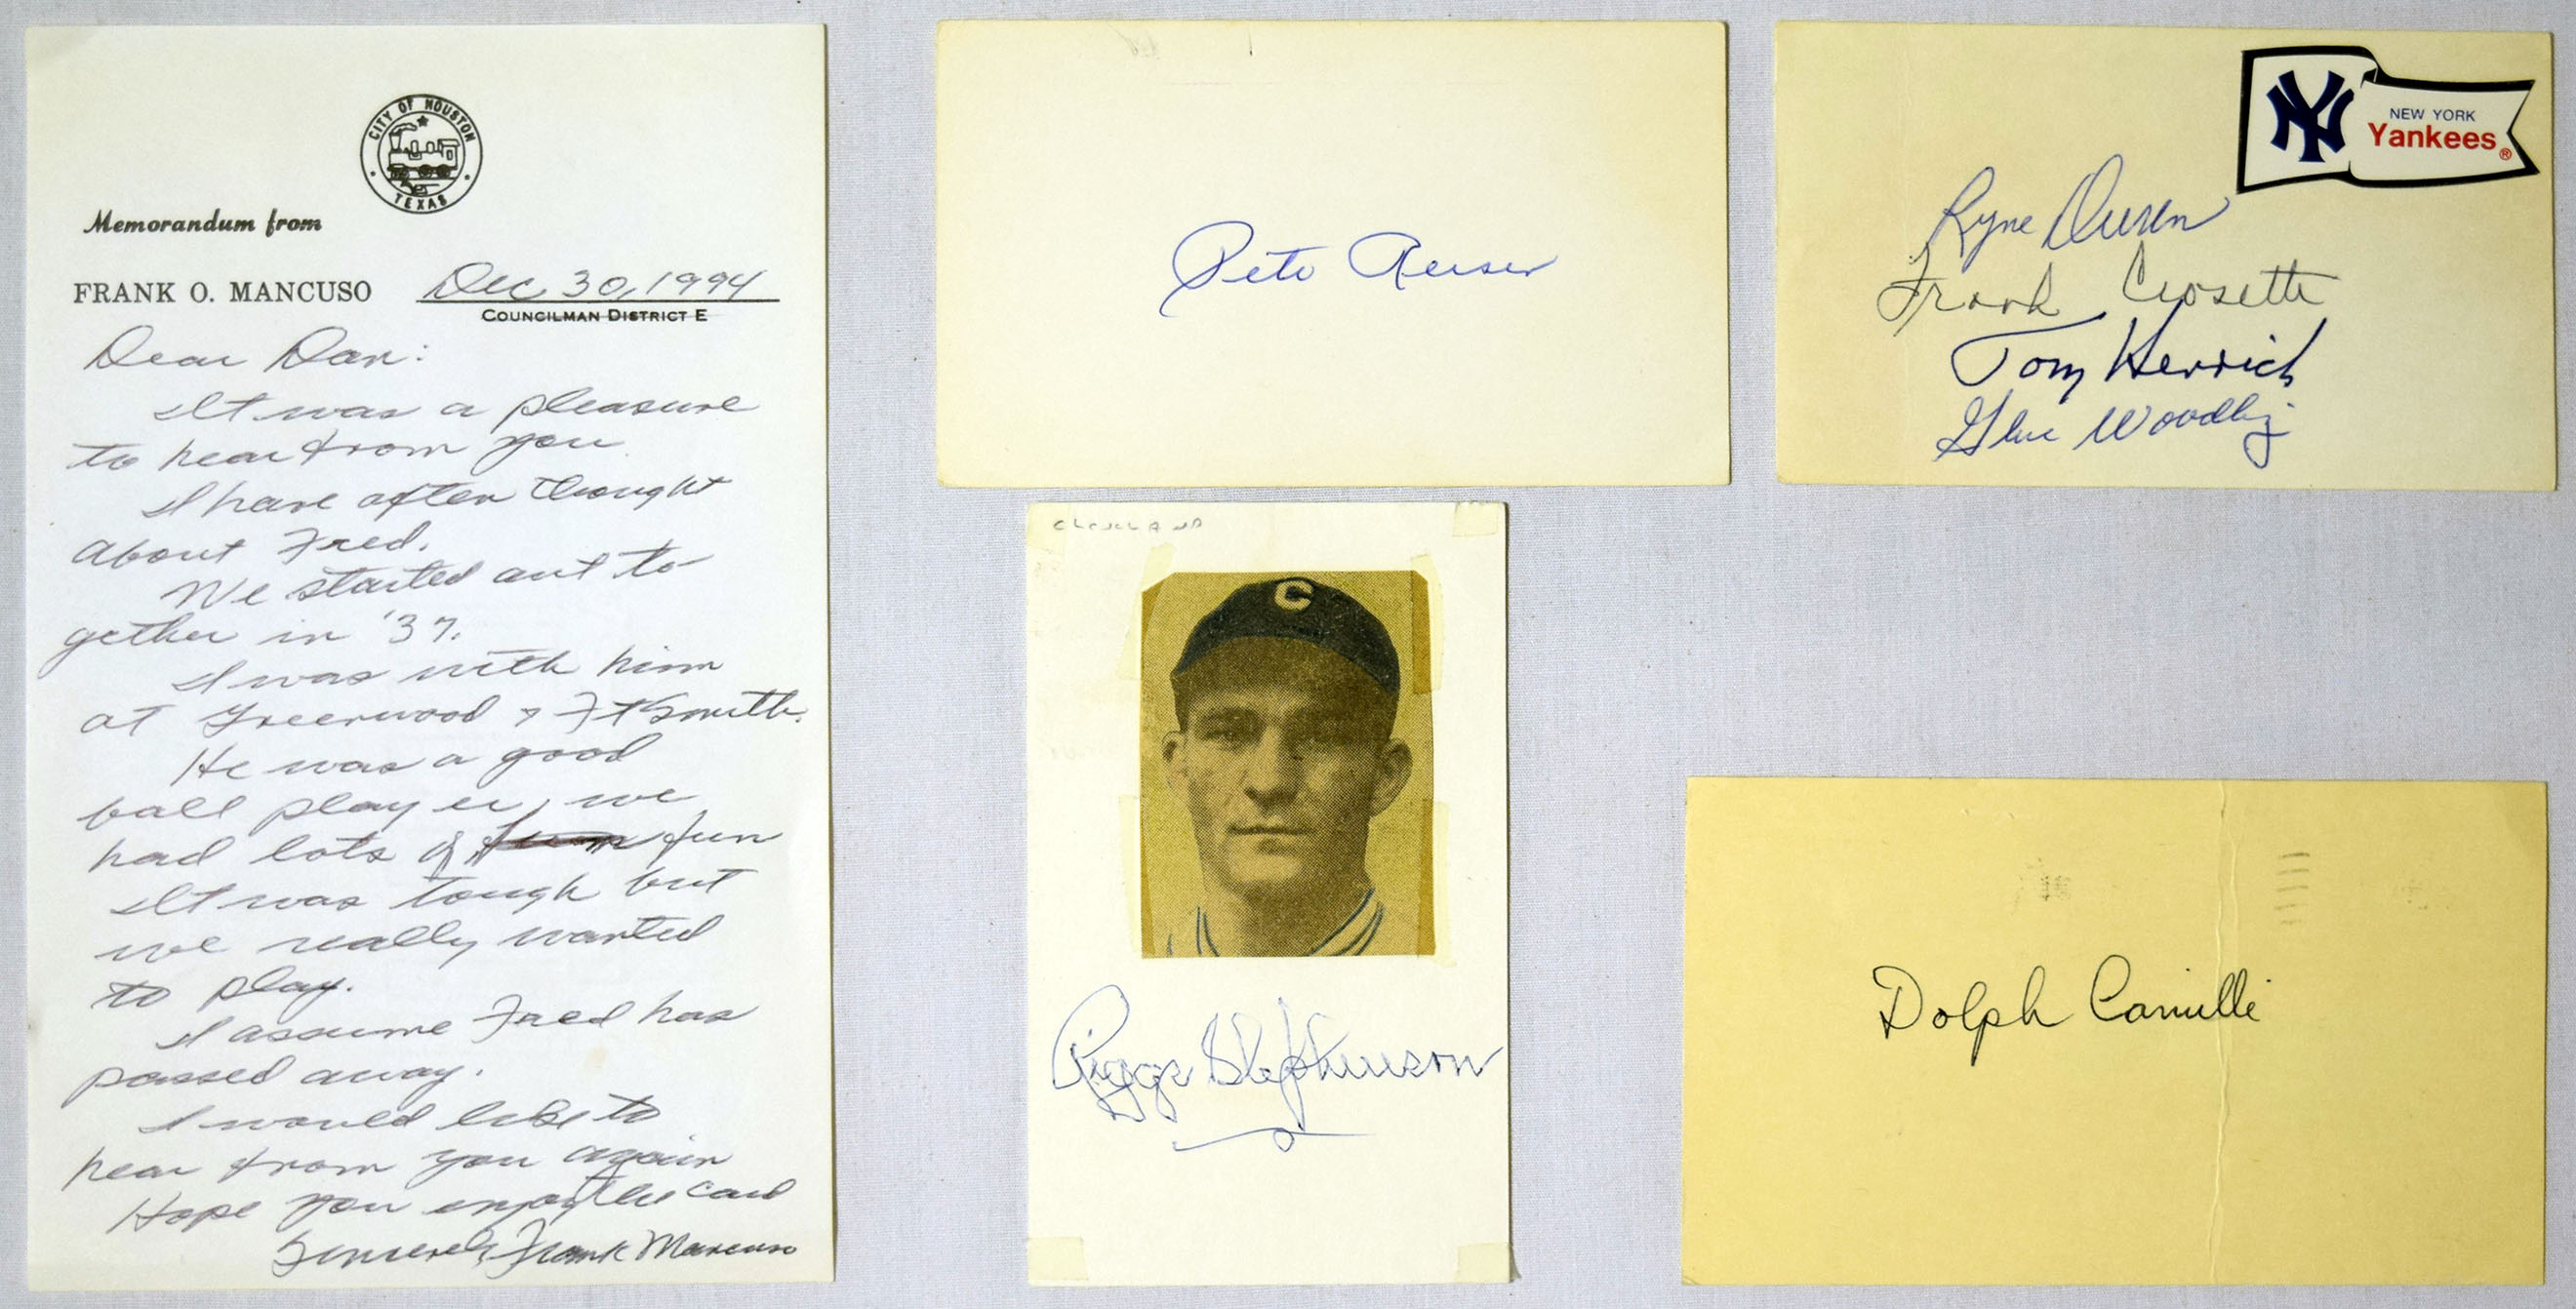 CITY OF HOUSTON
TEXAS
Memorandum from
FRANK O. MANCUSO Dec 30, 1994
COUNCILMAN DISTRICT E
Dear Dan:
It was a pleasure
to hear from you
I have often thought
about Fred.
We started out to-
gether in '37.
I was with him
at Greenwood & Ft Smith.
He was a good
ball player, we
had lots of fun
It was tough but
we really wanted
to play.
I assume Fred has
passed away.
I would like to
hear from you again
Hope you enjoy the card
Sincerely Frank Mancuso
Pete Reiser
NY
NEW YORK
Yankees®
Ryne Duren
Frank Crosetti
Tom Henrich
Gene Woodling
CLEVELAND
C
Riggs Stephenson
Dolph Camilli